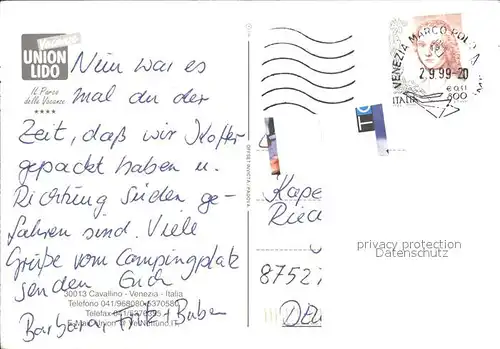 Vacanze
UNION
LIDO
Il Parco
delle Vacanze
Nun war es
mal an der
Zeit, daß wir Koffer
gepackt haben u.
Richtung Süden ge-
fahren sind. Viele
Grüße vom Campingplatz
senden Euch
Barbara, Fritz + Buben
30013 Cavallino - Venezia - Italia
Telefono 041/968080-5370580
Telefax 041/5370355
VENEZIA MARCO POLO
2.9.99-20
ITALIA
800
€ 0,41
Kape
Ried
8752
DEU
privacy protection
Datenschutz